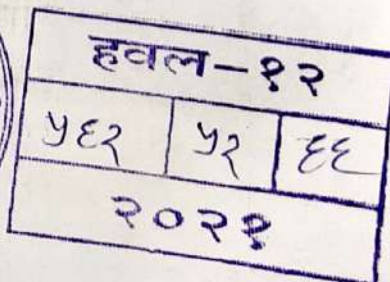 हवल-१२
५६२ ५२ ६६
२०२१